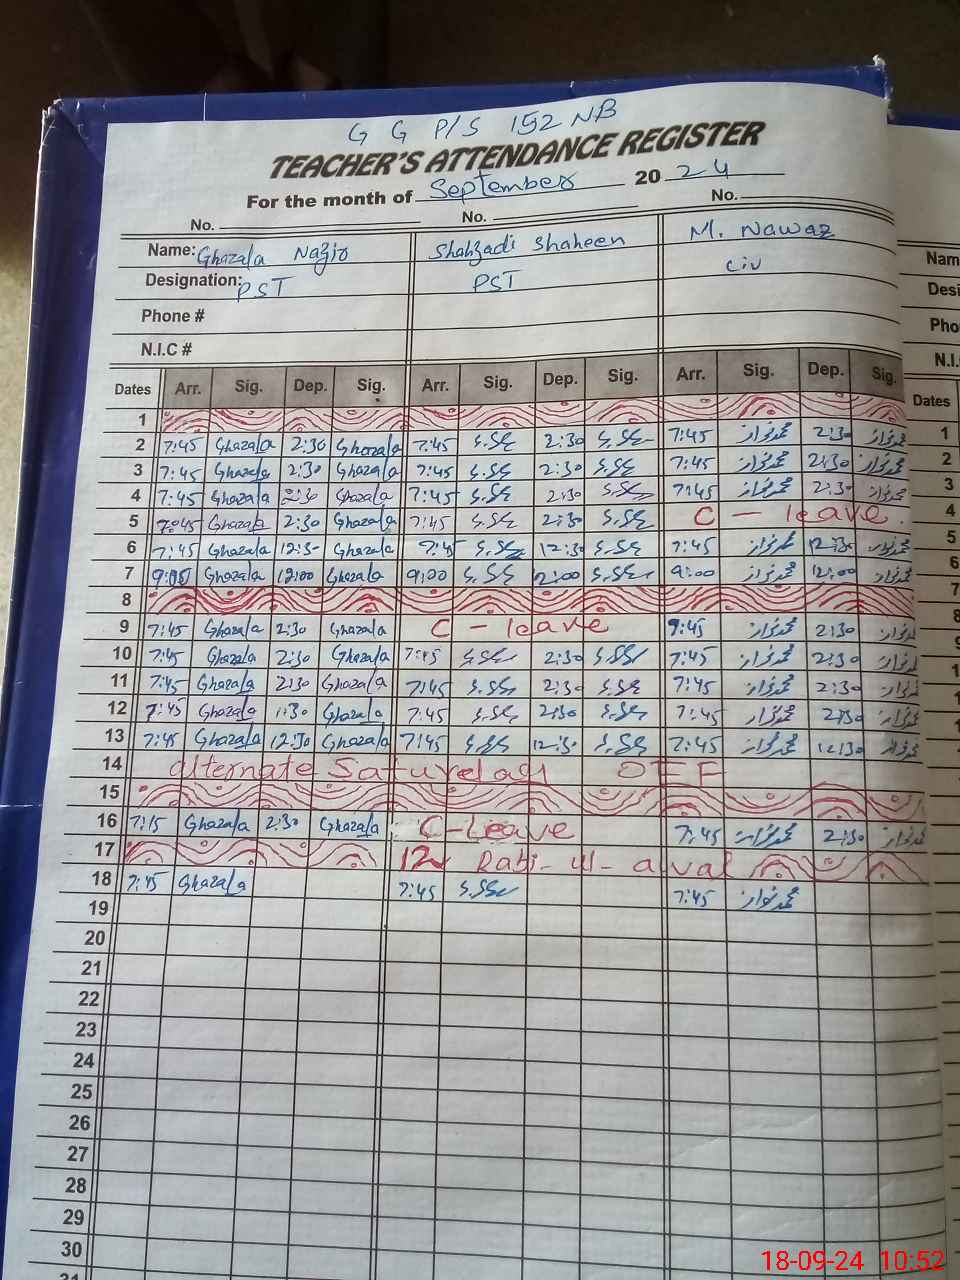 G G P/S 152 NB
TEACHER'S ATTENDANCE REGISTER
For the month of September 2024
No. No. No.
Name: Ghazala Nazir Shahzadi Shaheen M. Nawaz
Designation: PST PST Civ
Phone #
N.I.C #
Dates Arr. Sig. Dep. Sig. Arr. Sig. Dep. Sig. Arr. Sig. Dep. Sig.
1
2 7:45 Ghazala 2:30 Ghazala 7:45 S.Sh 2:30 S.Sh 7:45 محمد نواز 2:30 محمد نواز
3 7:45 Ghazala 2:30 Ghazala 7:45 S.Sh 2:30 S.Sh 7:45 محمد نواز 2:30 محمد نواز
4 7:45 Ghazala 2:30 Ghazala 7:45 S.Sh 2:30 S.Sh 7:45 محمد نواز 2:30 محمد نواز
5 7:45 Ghazala 2:30 Ghazala 7:45 S.Sh 2:30 S.Sh C - leave.
6 7:45 Ghazala 12:3- Ghazala 7:45 S.Sh 12:30 S.Sh 7:45 محمد نواز 12:30 محمد نواز
7 9:00 Ghazala 12:00 Ghazala 9:00 S.Sh 12:00 S.Sh 9:00 محمد نواز 12:00 محمد نواز
8
9 7:45 Ghazala 2:30 Ghazala C - leave 7:45 محمد نواز 2:30 محمد نواز
10 7:45 Ghazala 2:30 Ghazala 7:45 S.Sh 2:30 S.Sh 7:45 محمد نواز 2:30 محمد نواز
11 7:45 Ghazala 2:30 Ghazala 7:45 S.Sh 2:30 S.Sh 7:45 محمد نواز 2:30 محمد نواز
12 7:45 Ghazala 1:30 Ghazala 7:45 S.Sh 2:30 S.Sh 7:45 محمد نواز 2:30 محمد نواز
13 7:45 Ghazala 12:30 Ghazala 7:45 S.Sh 12:30 S.Sh 7:45 محمد نواز 12:30 محمد نواز
14 alternate Saturday OFF
15
16 7:15 Ghazala 2:30 Ghazala C-Leave 7:45 محمد نواز 2:30 محمد نواز
17 12 Rabi-ul-awal
18 7:45 Ghazala 7:45 S.Sh 7:45 محمد نواز
19
20
21
22
23
24
25
26
27
28
29
30
31
Nam
Desi
Pho
N.I.
Dates
1
2
3
4
5
6
7
8
9
18-09-24 10:52